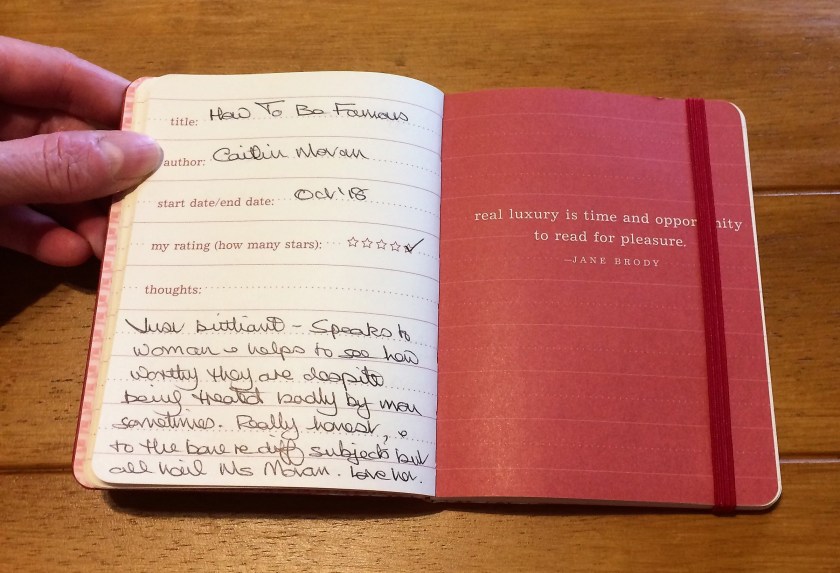 title: How To Be Famous
author: Caitlin Moran
start date/end date: Oct '18
my rating (how many stars): ☆☆☆☆☆✓
thoughts:
Just brilliant - Speaks to
woman & helps to see how
worthy they are despite
being treated badly by men
sometimes. Really honest, &
to the bone re diff subjects but
all hail Ms Moran. Love her.
real luxury is time and oppor nity
to read for pleasure.
—JANE BRODY